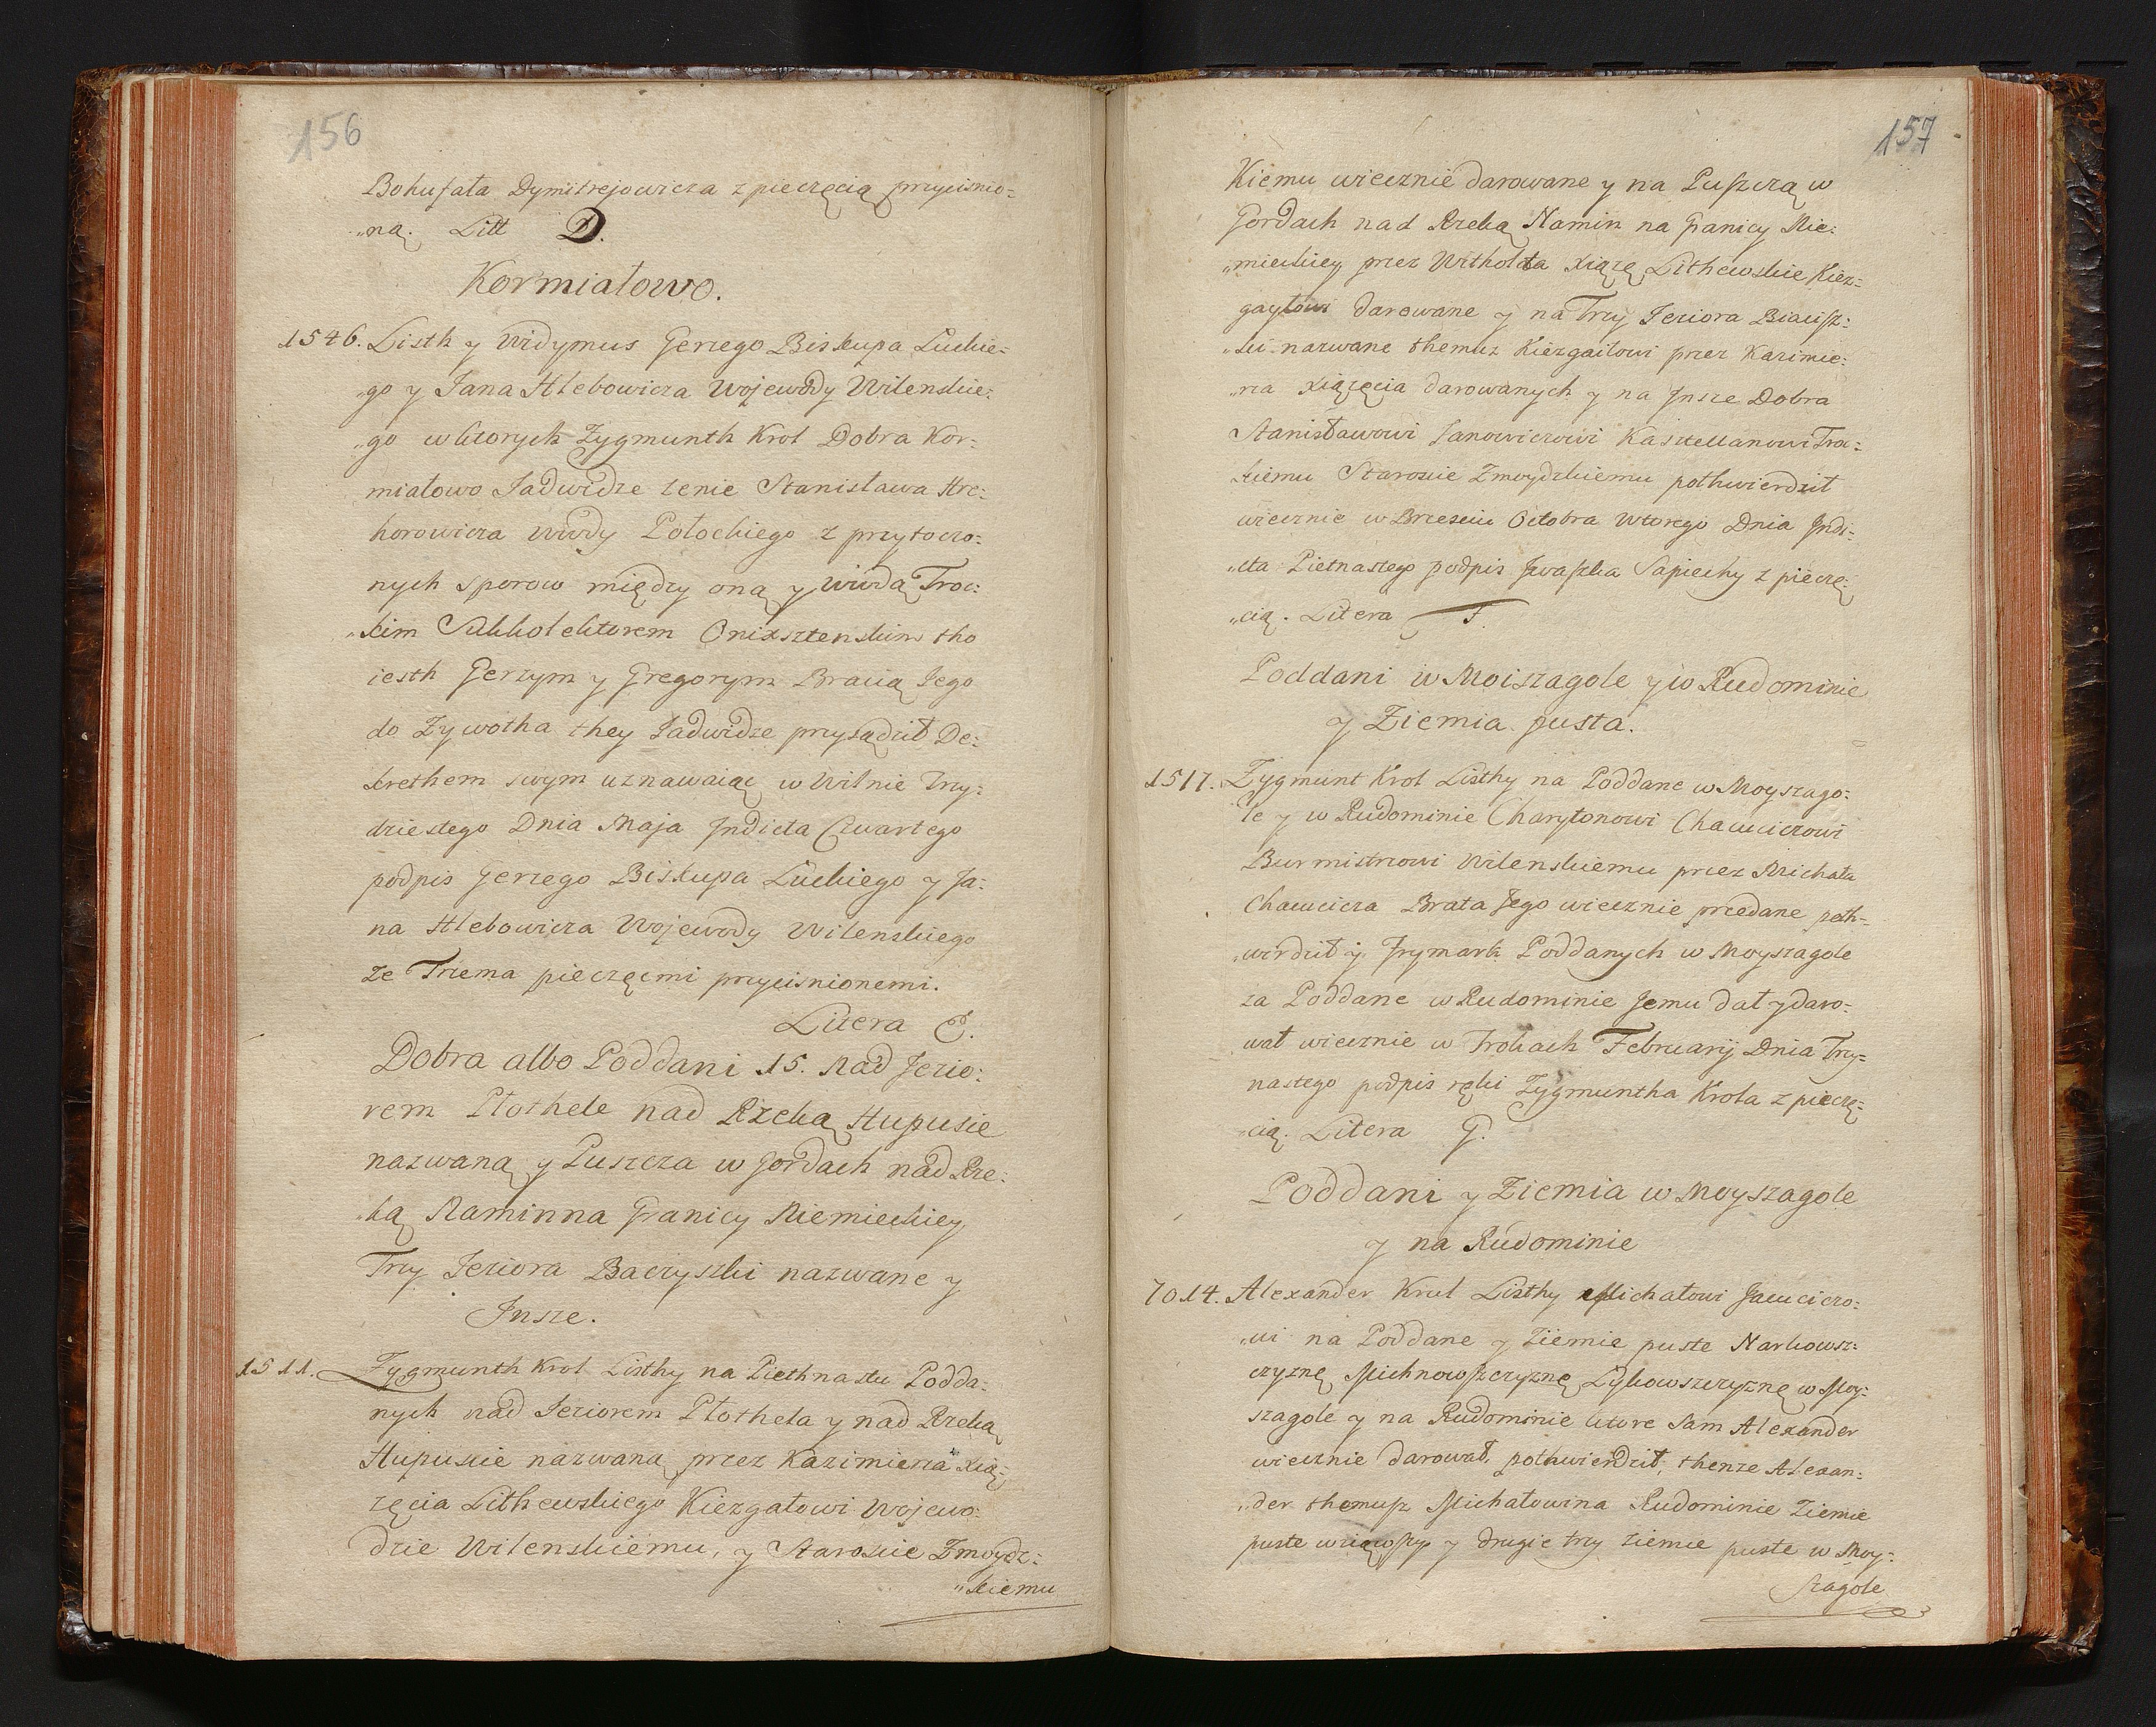 156
Bohufała Dymitrejowicza z pieczęcią przyciśnio:
„ną. Litt D.
Kormiałowo.
1546. Listh y Widymus Gerzego Biskupa Łuckie:
„go y Jana Hlebowicza Wojewody Wilenskie:
„go w ktorych Zygmunth Krol Dobra Kor:
miałowo Jadwidze żenie Stanisława Hre:
horowicza wwdy Połockiego z przytoczo:
nych sporow między oną y wwdą Troc:
„kim Onixsztenskim tho
iesth Gerzym y Gregorym Bracią Jego
do Zywotha they Jadwidze przysądził De:
krethem swym uznawaiąc w Wilnie Trzy:
dziestego Dnia Maja Jndicta Czwartego
podpis Gerzego Biskupa Łuckiego y Ja:
na Hlebowicza Wojewody Wilenskiego
ze Trzema pieczęcmi przycisnionemi.
Litera E.
Dobra albo Poddani 15. Nad Jezio:
rem Płothele nad Rzeką Hupusie
nazwaną y Puszcza w Gordach nad Rze:
„ką Naminna Granicy Niemieckiey
Trzy Jeziora Baczyszki nazwane y
Jnsze.
1511. Zygmunth Krol Listhy na Piethnastu Podda:
nych nad Jeziorem Płothela y nad Rzeką
Hupusie nazwaną przez Kazimierza Xią:
żęcia Lithewskiego Kiezgałowi Wojewo:
dzie Wilenskiemu, y Staroscie Zmoydz:
„kiemu
157
Kiemu wiecznie darowane y na Pusczą w
Gordach nad Rzeką Namin na Granicy Nie:
„mieckiey przez Witholda Xiążę Lithewskie Kiez:
gayłowi darowane y na Trzy Jeziora Biacisz:
„ki nazwane themuz Kiezgaiłowi przez Kazimie:
„rza Xiążęcia darowanych y na Jnsze Dobra
Stanisławowi Janowiczowi Kasztellanowi Troc:
kiemu Staroscie Zmoydzkiemu pothwierdził
wiecznie w Brzesciu Octobra wtorego Dnia Jndi:
„cta Pietnastego podpis Jwaszka Sapiechy z pieczę:
„cią. Litera F.
Poddani w Moiszagole y w Rudominie
y Ziemia pusta.
1517. Zygmunt Krol Listhy na Poddane w Moyszago:
le y w Rudominie Charytonowi
Burmistrzowi Wilenskiemu przez Michała
Brata Jego wiecznie przedane poth-
„wirdził y frymark Poddanych w Moyszagole
za Poddane w Rudominie Jemu dał y daro-
wał wiecznie w Trokach Februarij Dnia Trzy-
nastego podpis ręki Zygmuntha Krola z pieczę:
„cią. Litera G.
Poddani y Ziemia w Moyszagole
y na Rudominie
7014. Alexander Krul Listhy Michałowi
„wi na Poddane y ziemie puste Narkowsz:
czyznę Michnowszczyznę Łykowszczyznę w Moy:
szagole y na Rudominie ktore Sam Alexander
wiecznie darował, pothwierdził, thenze Alexan:
„der themusz Michałowi na Rudominie Ziemie
puste wziąwszy y drugie trzy ziemie puste w Moy:
szagole